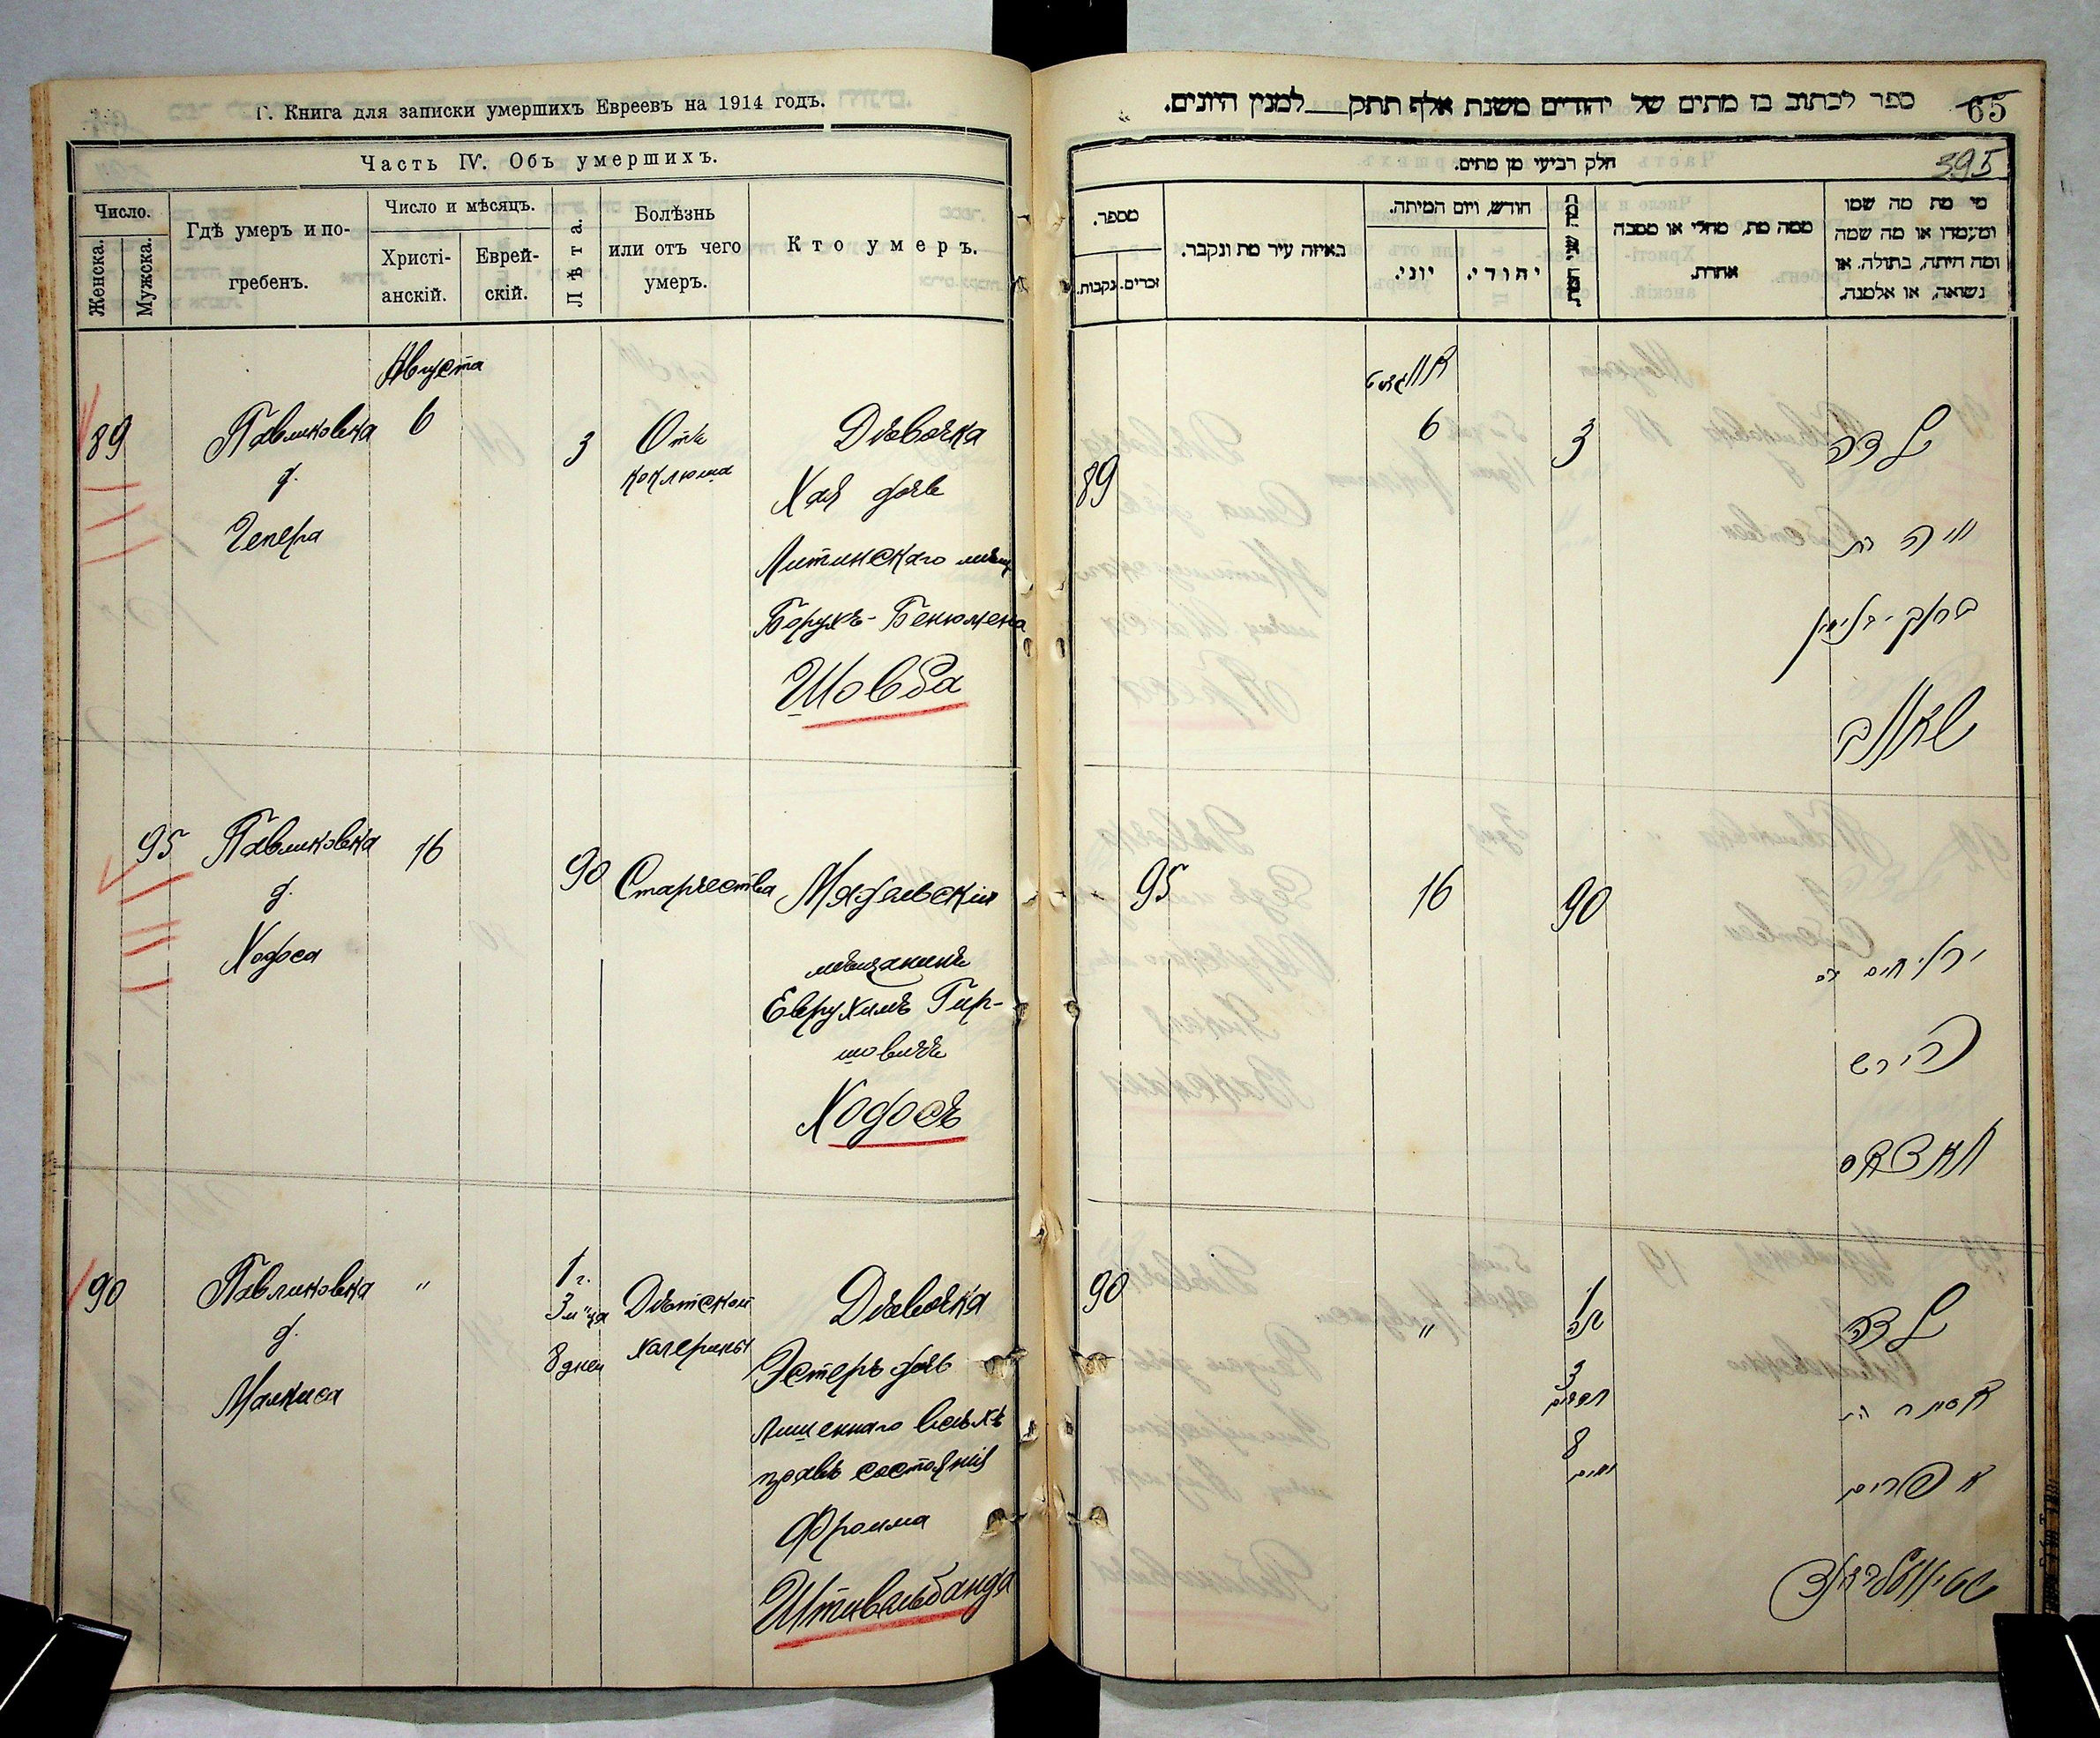 Г. Книга для записки умершихъ Евреевъ на 1914 годъ.
Часть IV. Объ умершихъ.
Число.
Женска.
Мужска.
Гдѣ умеръ и по-
гребенъ.
Число и мѣсяцъ.
Христі-
анскій.
Еврей-
скій.
Лѣта.
Болѣзнь
или отъ чего
умеръ.
Кто умеръ.
Августа
89
Павликовка
д.
Чепера
6
3
Отъ
коклюша
Дѣвочка
Хая дочь
Литинскаго мѣщ
Борухъ-Бенюмена
Шовба
95
Павликовка
д.
Ходоса
16
90
Старчества
Мядельскій
мѣщанинъ
Еврухимъ Гир-
шовичъ
Ходосъ
90
Павликовка
д.
Малкиса
"
1 г.
3 м-ца
8 дней
Дѣтской
холерины
Дѣвочка
Эстеръ дочь
лишеннаго всѣхъ
правъ состоянія
Фроима
Штивельбанда
ספר לכתוב בו מתים של יהודים משנת אלף תתק למנין היונים.
65
395
חלק רביעי מן מתים.
מספר.
נקבות.
זכרים.
באיזה עיר מת ונקבר.
חודש, ויום המיתה.
יוני.
יהודי.
כמה שני המת
ממה מת, מחלי או מסבה
אחרת.
מי מת מה שמו
ומעמדו או מה שמה
ומה היתה, בתולה, או
נשואה, או אלמנה.
אווגוסט
89
6
3
ילדה
חיה בת
ברוך-בנימין
שאווב
95
16
90
הירש
חאדאס
90
"
1
שנה
3
חדשים
8
ימים
ילדה
אסתר בת
אפרים
שטיוועלבאנד